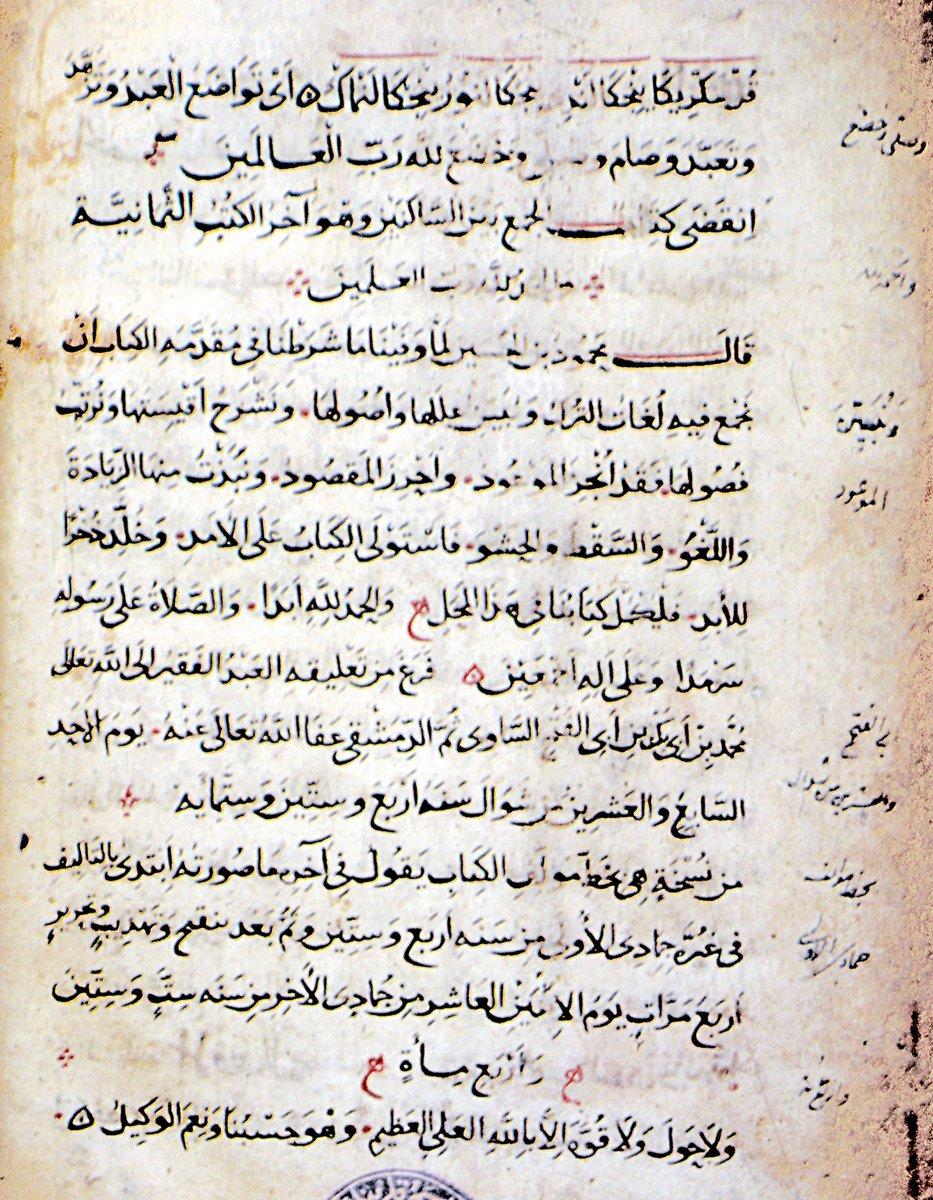 اى تواضع العَبدُ وَتزهّد
وَتعَبَّد وَصَامَ وخضع لله رَبّ العَالَمينَ
انقضَى كتاب الجمع بين السّاكنين وَهو آخر الكتب الثمانيَّة
والحمد لله رب العَلَمينَ
قال محمود بن الحسين لما وفينا ما شرطنا فى مُقدّمه الكتاب أنْ
نجمع فيه لُغات الترك وَنبين عللها وَاصُولها. وَنشرح اقيستها وَنُرتب
فصُولها. فقد انجز الموعود. واحرز المقصود. وَنبذت منها الزّيادة
وَاللّغو. وَالسَّقط والحشو. فاستَولى الكتابُ على الامد. وَخلّد ذخرا
للأبد. كتابنا فى هذا المحل والحمد لله ابدا. والصّلاة على رسُوله
سرمدا وَعلى اله اجمعين فرغ من تعليقه العبد الفقير الى الله تعالى
محمّد بن أبى بكر بن أبى الفتح السّاوى ثُمّ الدّمشقى عفا اللهُ تعالى عنه. يوم الاحد
السّابع وَالعشرين من شوال سَنه اربع وستّين وَستمايه
من نُسْخةٍ هى بخطّ مولف الكتاب يقول فى آخره ما صُورته ابتدى بالتاليف
فى غُرّة جمادى الأولى من سَنه اربع وستّين وتمّ بعد تنقيح وَتهذيبٍ وتحريرٍ
اربعَ مَرّاتٍ يوم الاثنين العاشر من جمادى الأخر من سنه ستٍّ وستّين
وَاربع مأة
وَلا حولَ وَلا قوّة الا بالله العلى العظيم. وَهو حسبُنا وَنعم الوكيل
وصلى وخضع
والحمد لله
ونبين
الموعود
ابى الفتح
والعشرين من شوال
بخط مولف
جمادى الاولى
واربع مأه